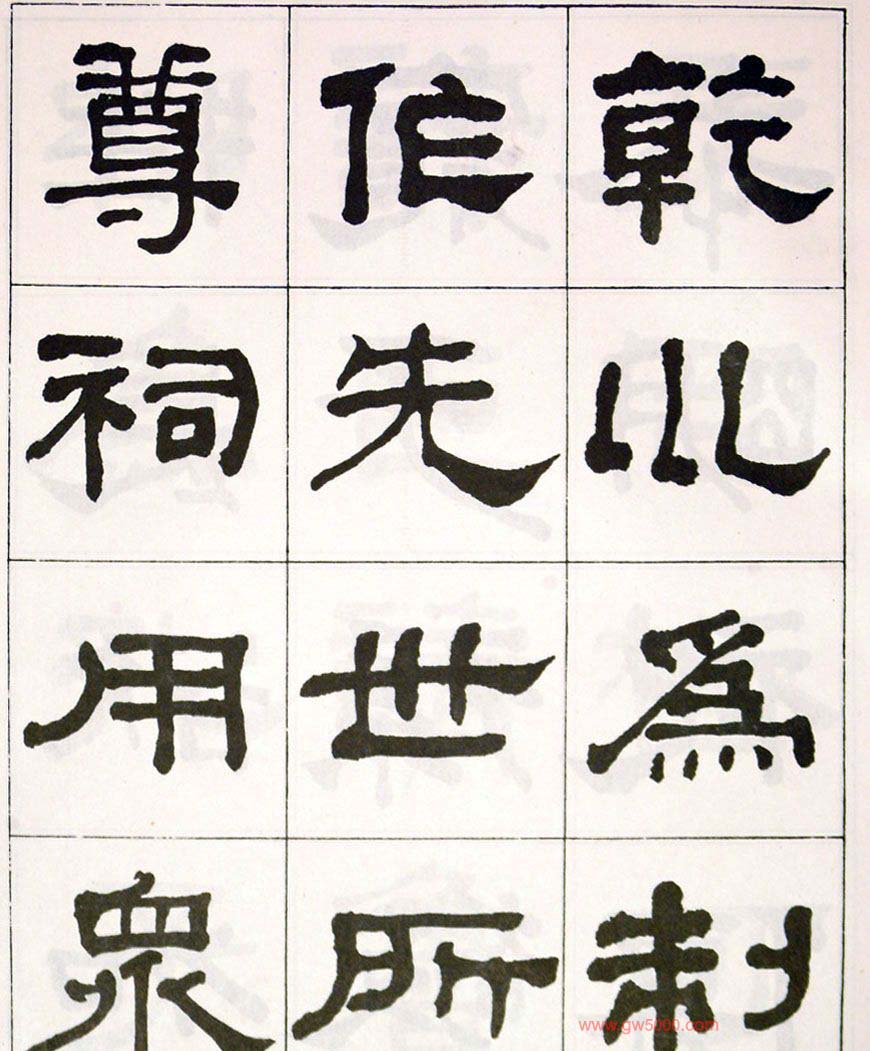 乾巛爲制
作先世所
尊祠用衆
www.gw5000.com